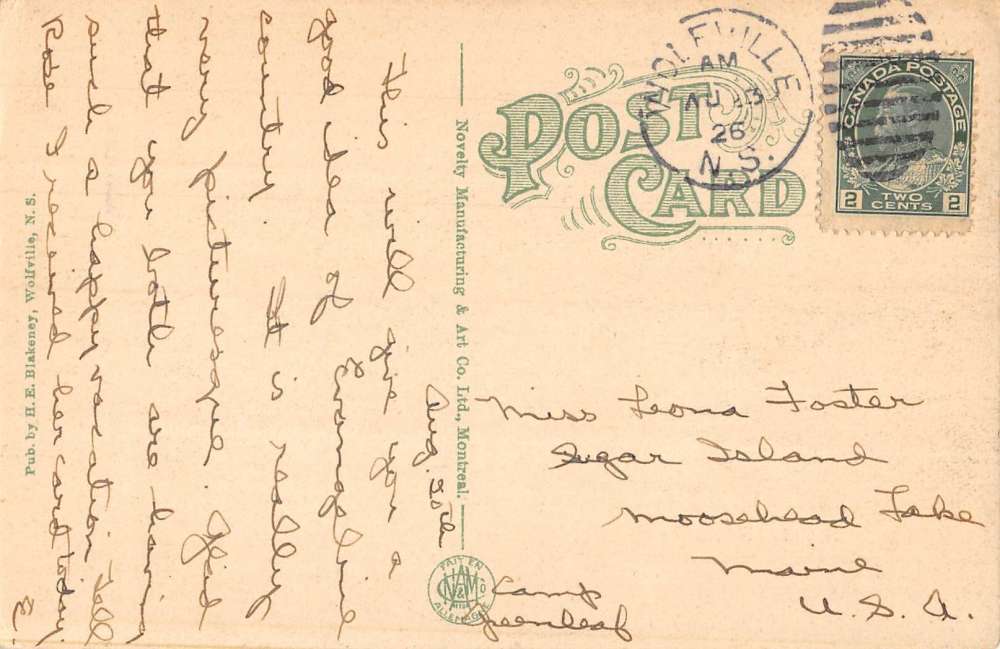 Aug. 30th
This will give you a
good idea of Evangeline
country. It is really
very picturesque. Glad
that you both are having
such a happy vacation. Tell
Rose I received her card today.
E.
Pub. by H. E. Blakeney, Wolfville, N. S.
Novelty Manufacturing & Art Co. Ltd., Montreal.
POST
CARD
WOLFVILLE
AM
AU
26
N.S.
CANADA POSTAGE
2 TWO CENTS 2
Miss Leona Foster
Sugar Island
Moosehead Lake
Maine
U. S. A.
Camp
Greenleaf
FAIT EN
ALLEMAGNE